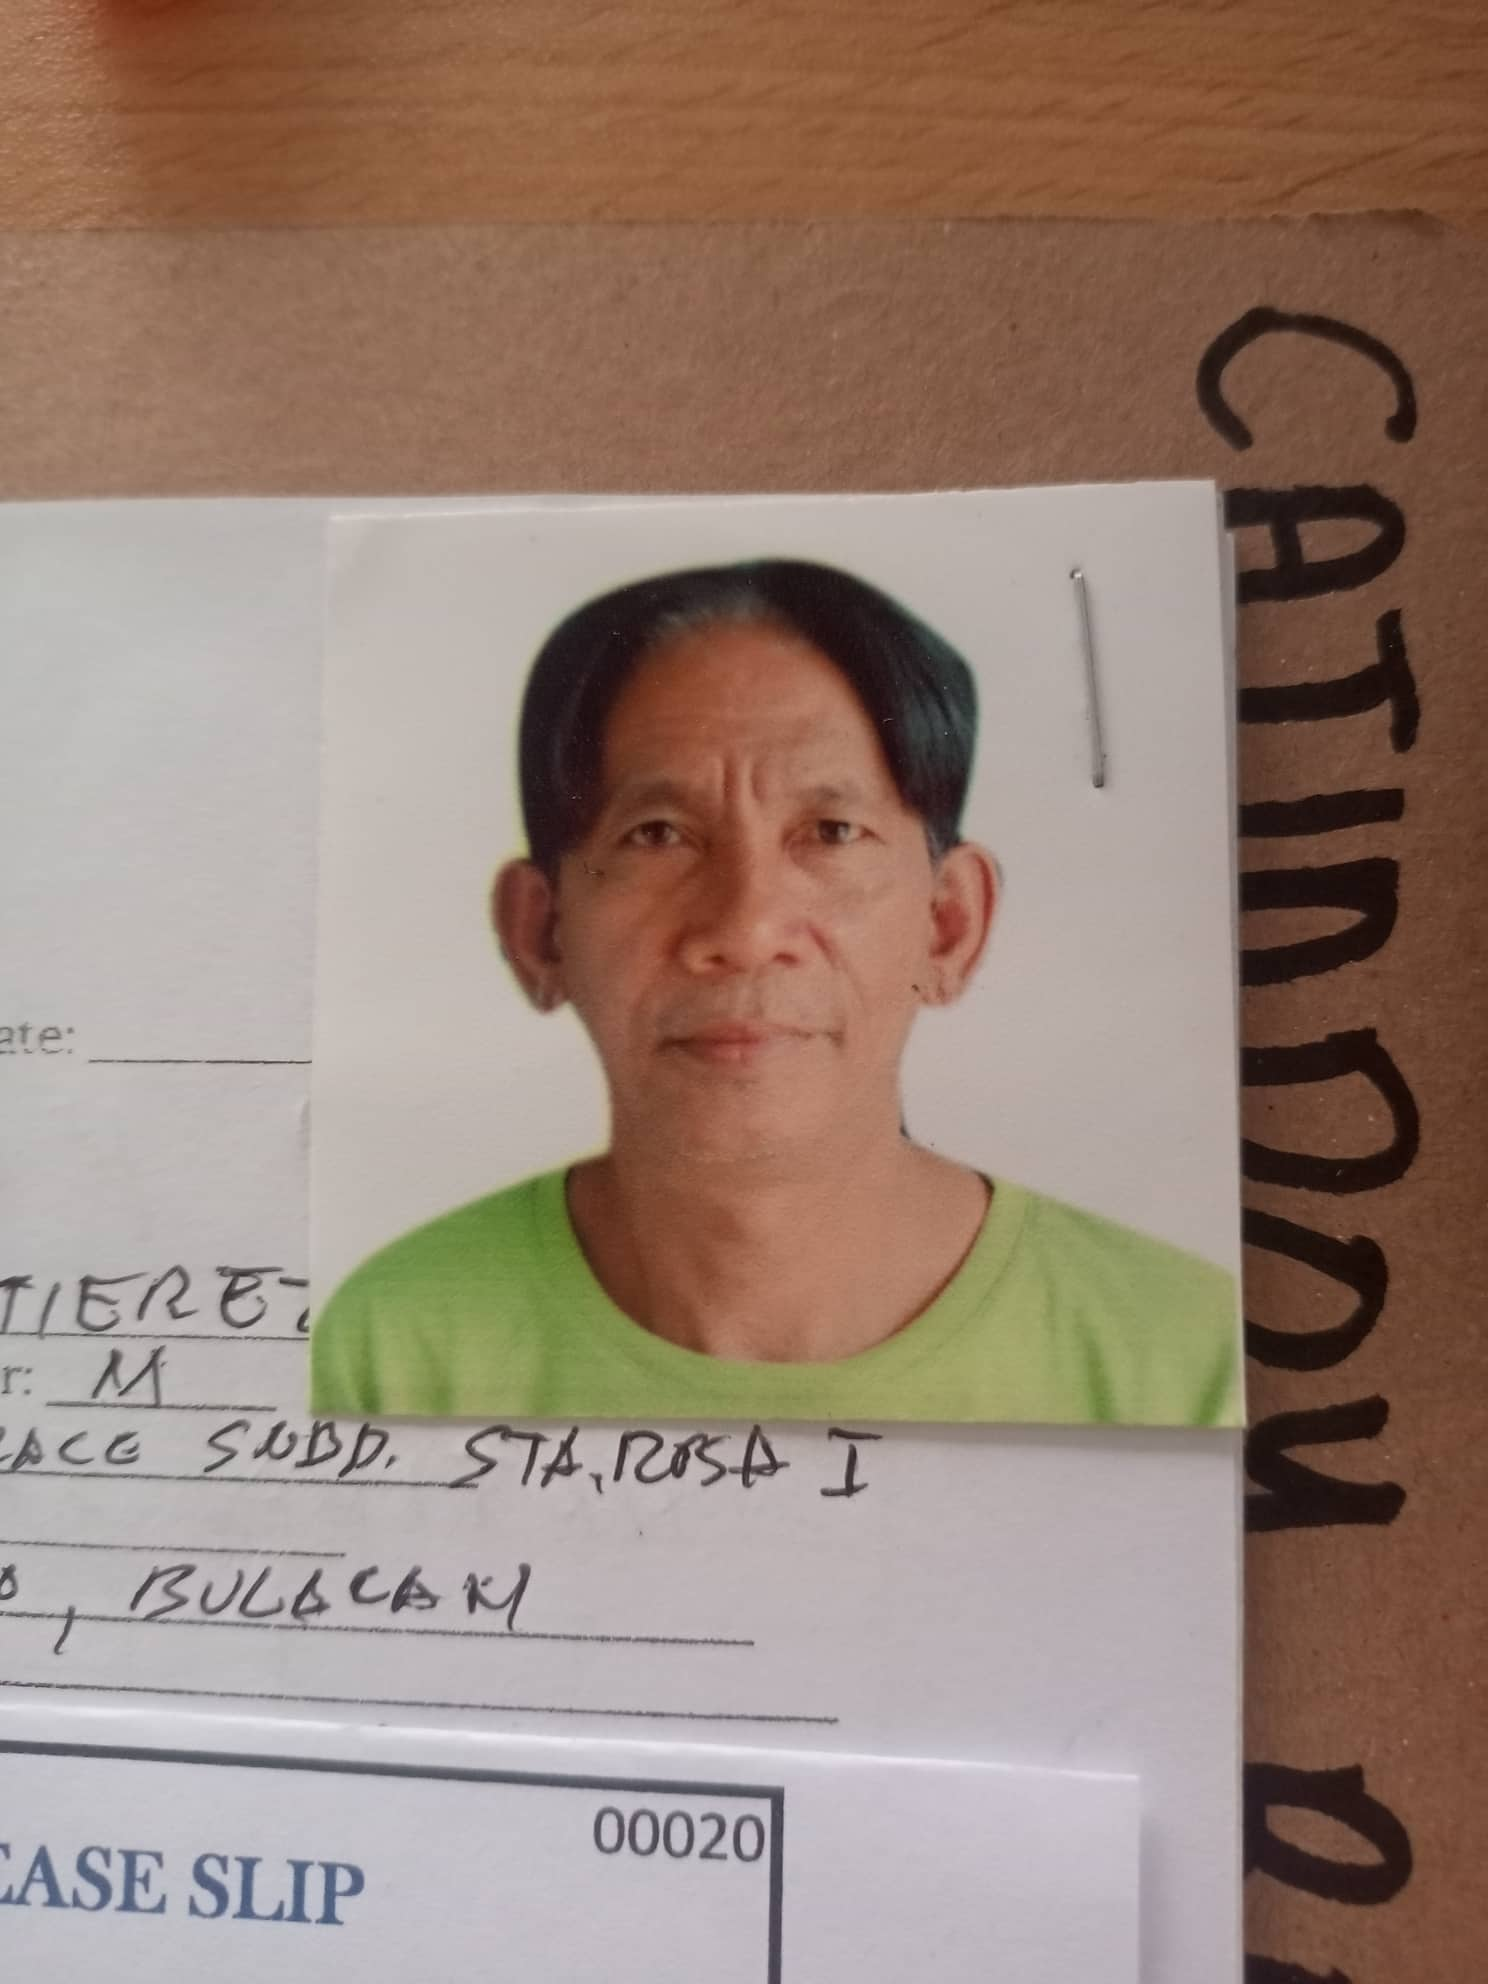 CATINDOY
ate:
TIEREZ
r: M
RACE SUBD. STA. ROSA I
, BULACAN
00020
EASE SLIP